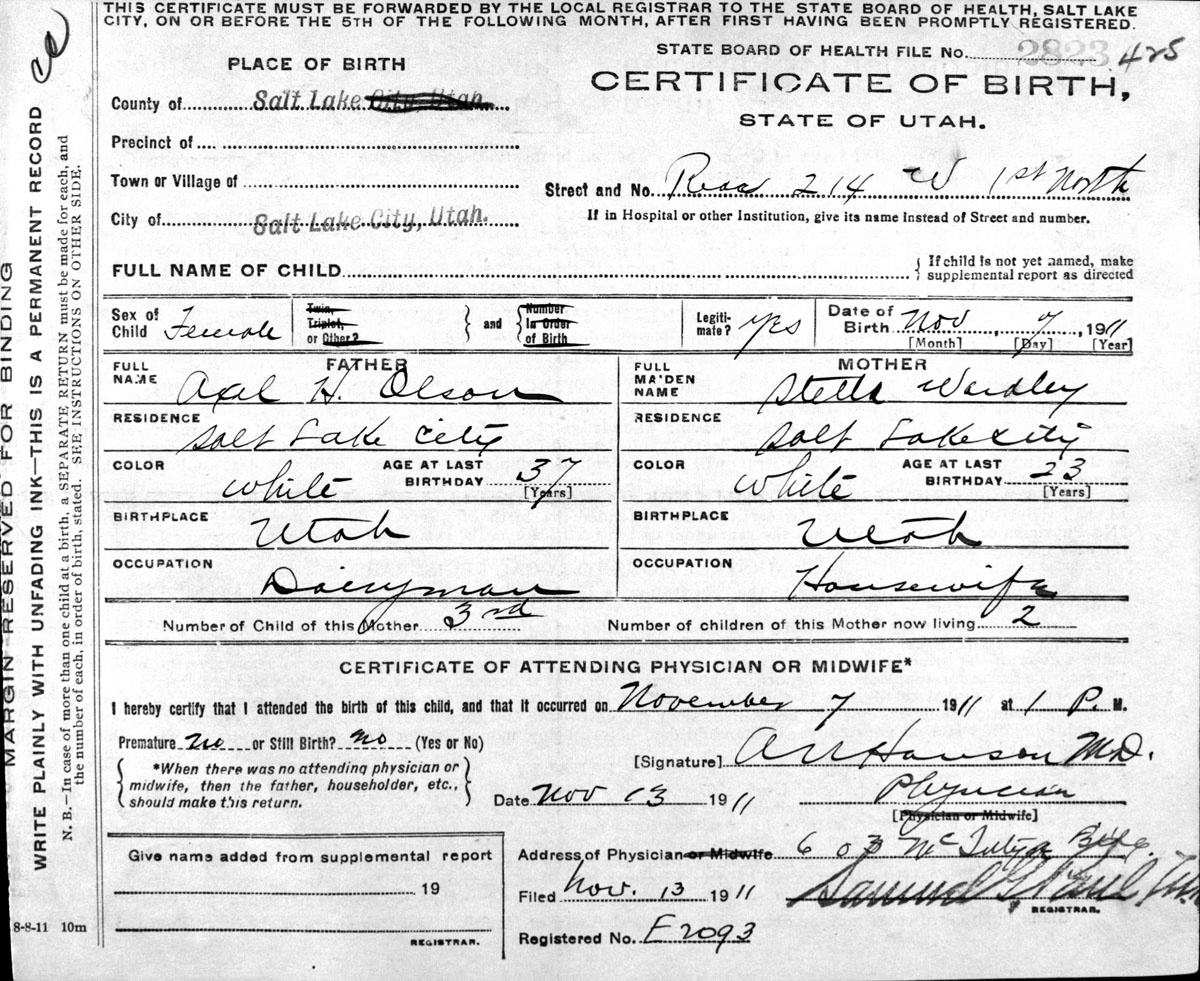 THIS CERTIFICATE MUST BE FORWARDED BY THE LOCAL REGISTRAR TO THE STATE BOARD OF HEALTH, SALT LAKE
CITY, ON OR BEFORE THE 5TH OF THE FOLLOWING MONTH, AFTER FIRST HAVING BEEN PROMPTLY REGISTERED.
STATE BOARD OF HEALTH FILE No. 2823 425
PLACE OF BIRTH
CERTIFICATE OF BIRTH,
STATE OF UTAH.
County of Salt Lake City, Utah.
Precinct of
Town or Village of
Street and No. 214 W 1st North
City of Salt Lake City, Utah.
If in Hospital or other Institution, give its name instead of Street and number.
FULL NAME OF CHILD
{ If child is not yet named, make
supplemental report as directed
Sex of Child Female
Twin, Triplet, or Other? } and { Number In Order of Birth
Legiti-mate? Yes
Date of Birth Nov, 7, 1911
[Month] [Day] [Year]
FATHER
FULL NAME Axel H. Olson
MOTHER
FULL MAIDEN NAME Stella Wardley
RESIDENCE Salt Lake City
RESIDENCE Salt Lake City
COLOR White AGE AT LAST BIRTHDAY 37 [Years]
COLOR White AGE AT LAST BIRTHDAY 23 [Years]
BIRTHPLACE Utah
BIRTHPLACE Utah
OCCUPATION Dairyman
OCCUPATION Housewife
Number of Child of this Mother 3rd
Number of children of this Mother now living 2
CERTIFICATE OF ATTENDING PHYSICIAN OR MIDWIFE*
I hereby certify that I attended the birth of this child, and that it occurred on November 7 1911 at 1 P. M.
Premature no or Still Birth? no (Yes or No)
[Signature] Hanson M.D.
{ *When there was no attending physician or
midwife, then the father, householder, etc.,
should make this return. }
Date Nov 13 1911
Physician
[Physician or Midwife]
Give name added from supplemental report
19
REGISTRAR.
Address of Physician or Midwife 603 Mc
Filed Nov. 13 1911 Samuel G.
REGISTRAR.
Registered No. E2093
8-8-11 10m
MARGIN RESERVED FOR BINDING
WRITE PLAINLY WITH UNFADING INK—THIS IS A PERMANENT RECORD
N. B.—In case of more than one child at a birth, a SEPARATE RETURN must be made for each, and
the number of each, in order of birth, stated. SEE INSTRUCTIONS ON OTHER SIDE.